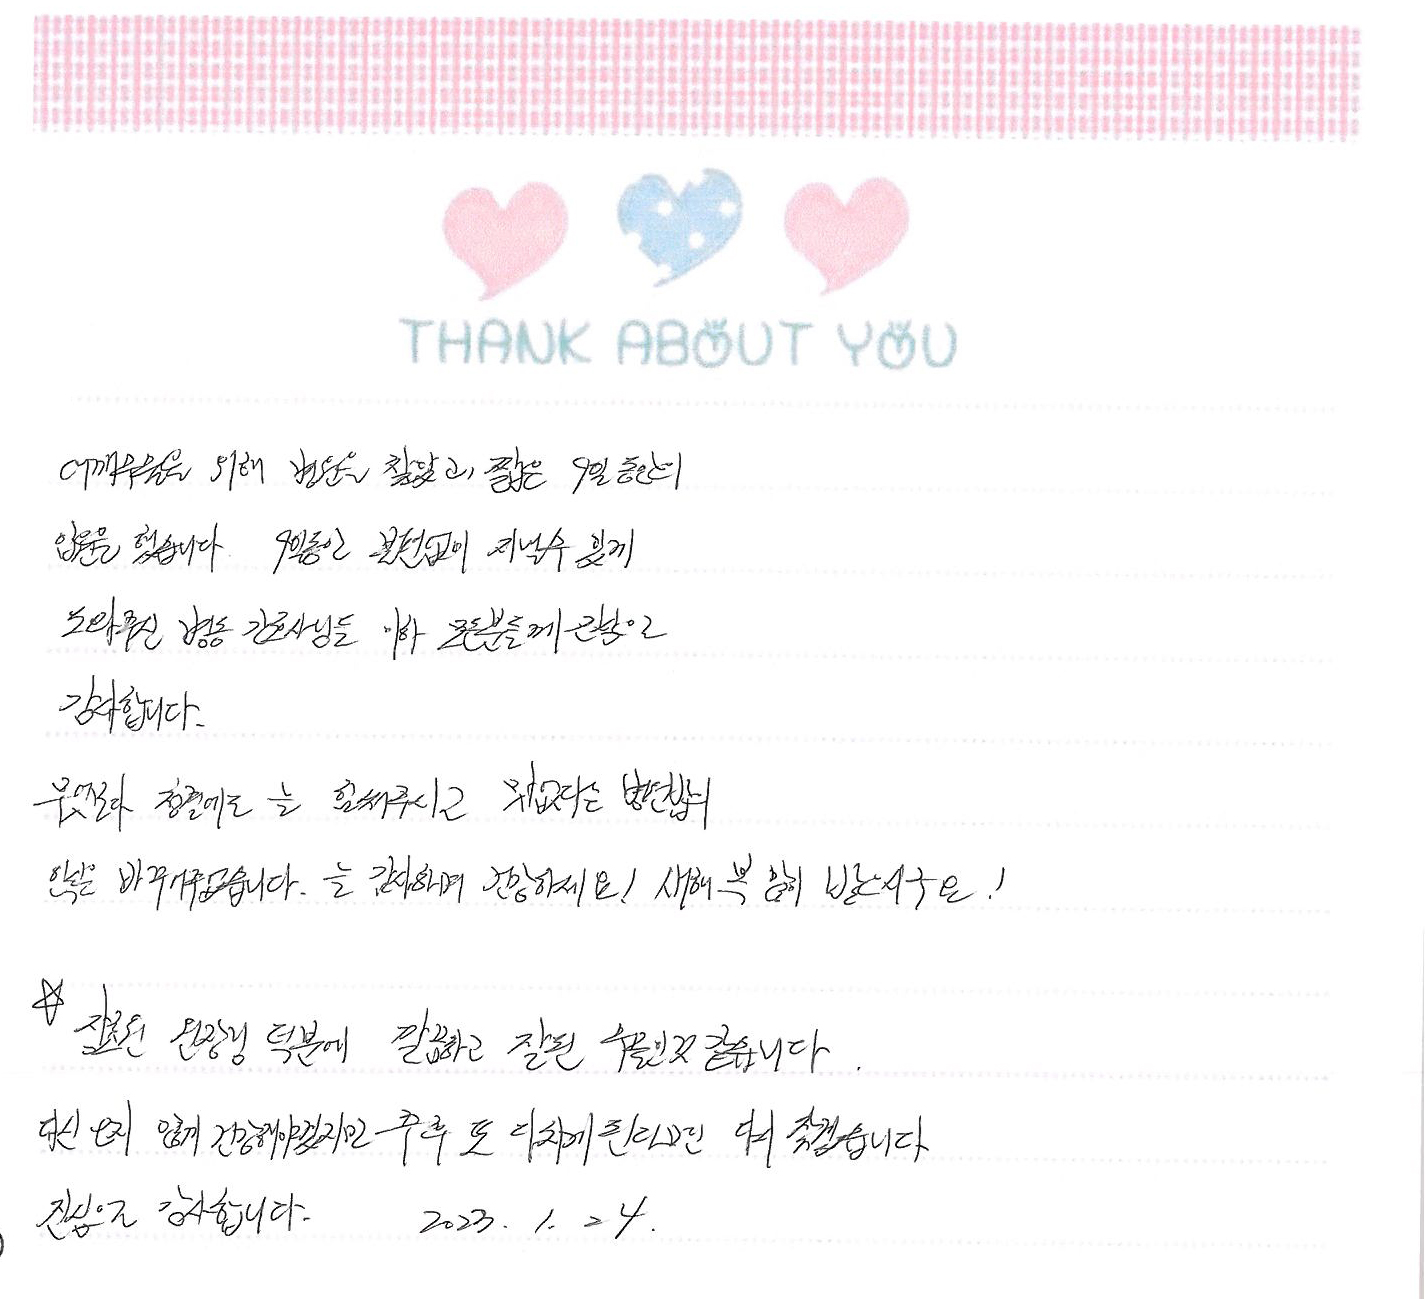 THANK ABOUT YOU
어깨수술을 위해 병원을 찾았고, 짧은 9일 동안의
입원을 했습니다 9일동안 불편없이 지낼수 있게
도와주신 병동 간호사님들 이하 모든분들께 진심으로
감사합니다.
늘 힘써주시고
바꾸어주었습니다. 늘 감사하며 건강하세요! 새해 복 많이 받으시구요!
원장님 덕분에 깔끔하고 잘된 수술인것 같습니다.
다신 오지 않게 건강해야겠지만 추후 또 다치게 된다면 다시 찾겠습니다
진심으로 감사합니다. 2023. 1. 24.